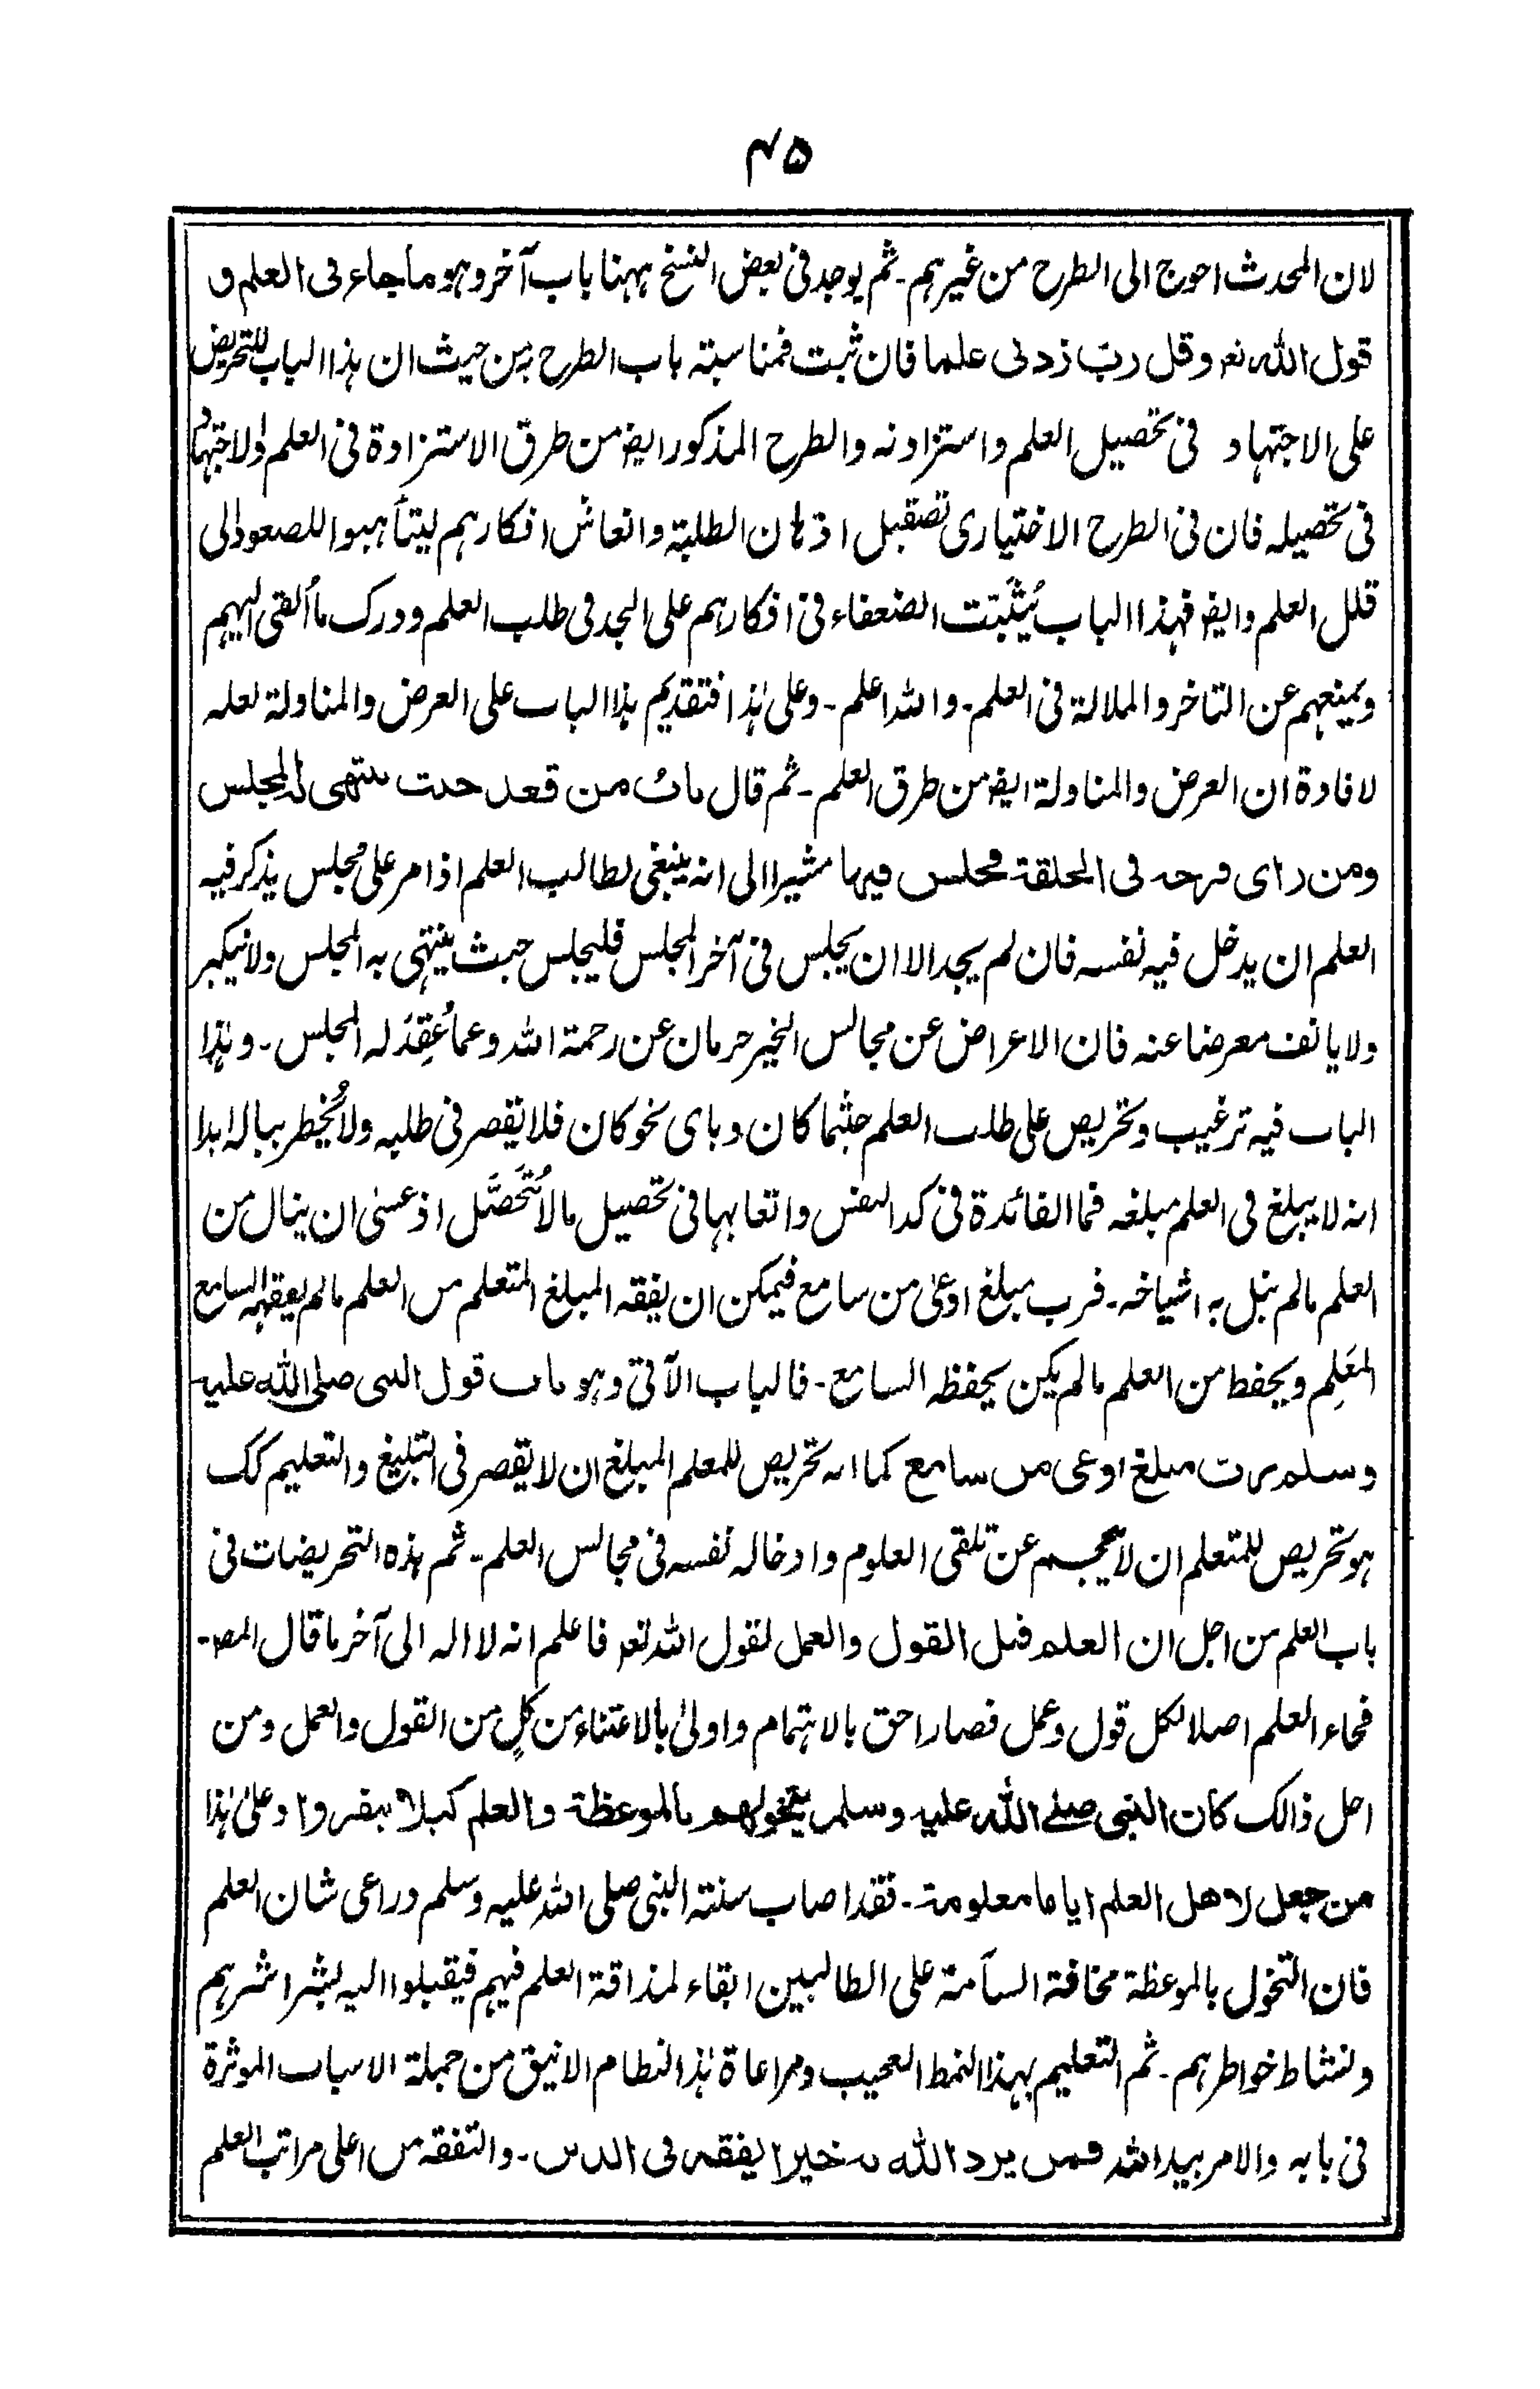 ۴۵
لان المحدث احوج الى الطرح من غيرہم۔ ثم يوجد فى بعض النسخ ہہنا باب آخر وہو ما جاء فى العلم و
قول الله تعہ وقل ربّ زدنى علما فان ثبت فمناسبتہ باب الطرح من حيث ان ہذا الباب للتحريض
على الاجتہاد فى تحصيل العلم واستزادتہ والطرح المذكور ايضہ من طرق الاستزادة فى العلم والاجتہاد
فى تحصيلہ فان فى الطرح الاختيارى تصقيل اذہان الطلبة وانعاش افكارہم ليتأہبوا للصعود الى
قلل العلم وايضہ فہذا الباب يُثَبّت الضعفاء فى افكارہم على الجد فى طلب العلم ودرك ما اُلقى اليہم
ويمنعہم عن التاخر والملالة فى العلم۔ والله اعلم۔ وعلى ہٰذا فتقديم ہذا الباب على العرض والمناولة لعلہ
لافادة ان العرض والمناولة ايضہ من طرق العلم۔ ثم قال باب من قعد حيث ينتهى به المجلس
ومن راى فرجة فى الحلقة فجلس فيها مشيرا الى انہ ينبغى لطالب العلم اذا مر على مجلس يذكر فيہ
العلم ان يدخل فيہ نفسہ فان لم يجد الا ان يجلس فى آخر المجلس فليجلس حيث ينتہى بہ المجلس ولا يتكبر
ولا يانف معرضا عنہ فان الاعراض عن مجالس الخير حرمان عن رحمة الله وعما عُقِدَ لہ المجلس۔ وہٰذا
الباب فيہ ترغيب وتحريص على طلب العلم حيثما كان وباى نحو كان فلا يقصر فى طلبہ ولا يُخطر ببالہ ابدا
انہ لا يبلغ فى العلم مبلغہ فما الفائدة فى كد النفس واتعابہا فى تحصيل ما لا تُتَحَصَّل اذ عسىٰ ان ينال من
العلم ما لم ينل بہ اشياخہ۔ فرب مبلغ اوعىٰ من سامع فيمكن ان يفقہ المبلغ المتعلم من العلم ما لم يفقہہ السامع
المعَلِم ويحفظ من العلم ما لم يكن يحفظہ السامع۔ فالباب الآتى وہو باب قول النبى صلى الله عليه
وسلم رب مبلغ اوعى من سامع كما انہ تحريص للمعلم المبلغ ان لا يقصر فى التبليغ والتعليم كك
ہو تحريص للمتعلم ان لا يحجم عن تلقى العلوم وادخالہ نفسہ فى مجالس العلم۔ ثم ہذہ التحريضات فى
باب العلم من اجل ان العلم قبل القول والعمل لقول الله تعہ فاعلم انہ لا الہ الى آخر ما قال المصہ۔
فجاء العلم اصلا لكل قول وعمل فصار احق بالاہتمام واولىٰ بالاعتناء من كلٍ من القول والعمل ومن
اجل ذالك كان النبى صلے الله عليه وسلم يتخولهم بالموعظة والعلم كيلا ينفروا وعلىٰ ہٰذا
من جعل لاهل العلم اياما معلومة۔ فقد اصاب سنتہ النبى صلى الله عليہ وسلم وراعى شان العلم
فان التخول بالموعظة مخافة السآمة على الطالبين ابقاء لمذاقة العلم فيہم فيقبلوا اليہ بشراشرہم
ونشاط خواطرہم۔ ثم التعليم بہذا النمط العجيب ومراعاة ہٰذا النظام الانيق من جملة الاسباب الموثرة
فى بابہ والامر بيد الله فمن يرد الله به خيرا يفقهه فى الدين۔ والتفقہ من اعلى مراتب العلم